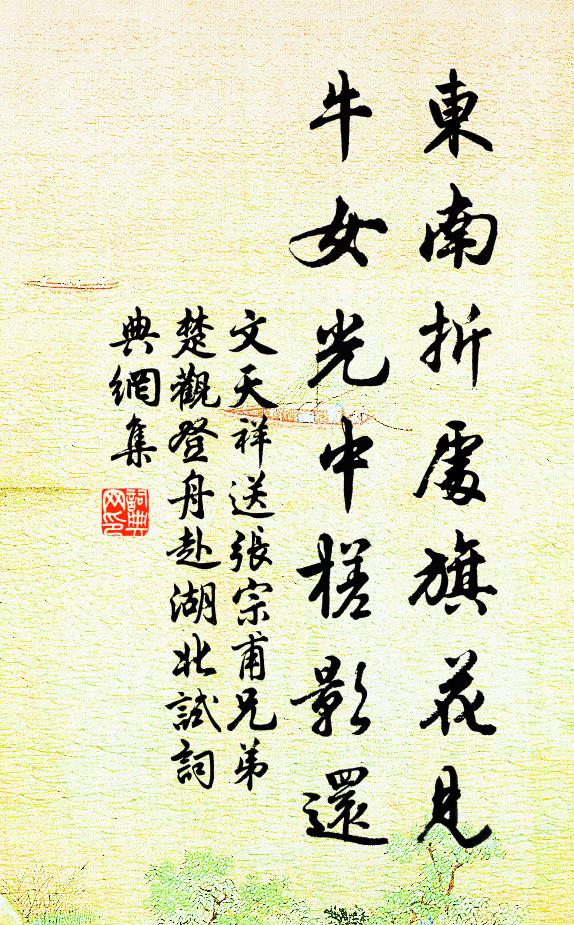 東南折處旗花見
牛女光中槎影還
文天祥送張宗甫兄弟
楚觀登舟赴湖北試詞
典網集
詞典
网印